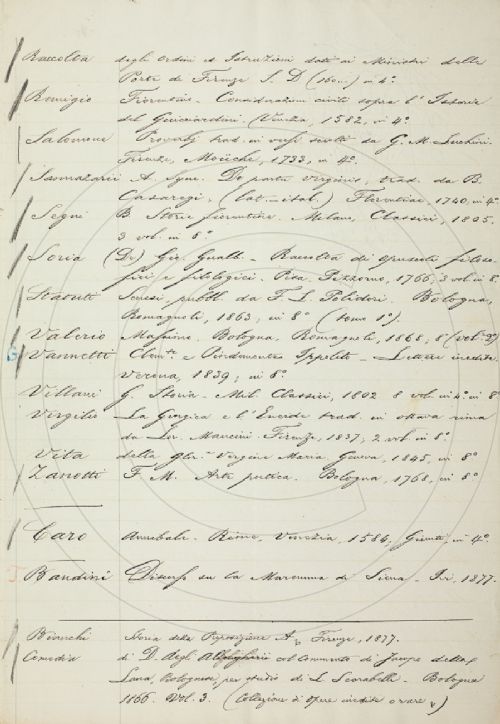 Raccolta degli Ordini et Istruzioni dati ai Ministri delle
Porte di Firenze S. D. (160..) in 4°
Remigio Fiorentino. Considerazioni civili sopra l'Istorie
del Guicciardini. (Venezia, 1582, in 4°
Salomone Proverbj trad. in versi sciolti da G. M. Luchini.
Firenze, Moücke, 1733, in 4°.
Sannazarii A. Sync. De partu virginis, trad. da B.
Casaregi, (lat.-ital.) Florentiae, 1740, in 4°
Segni B. Storie fiorentine. Milano, Classici, 1805.
3 vol. in 8°
Soria (De) Gio. Gualb. - Raccolta di opuscoli filoso-
fici e filologici. Pisa, Pizzorno, 1766, 3 vol. in 8°
Statuti Senesi, pubbl. da F. L. Polidori. Bologna,
Romagnoli, 1863, in 8° (tomo 1°).
Valerio Massimo. Bologna, Romagnoli, 1868, 8°
Vannetti Clem.te e Pindemonte Ippolito - Lettere inedite.
Verona, 1839, in 8°.
Villani G. Storia. - Mil. Classici, 1802 8 vol. in 8°
Virgilio La Giorgica e l'Eneide trad. in ottava rima
da Lor. Mancini. Firenze, 1837, 2 vol. in 8°
Vita della Glr.a Vergine Maria. Genova, 1845, in 8°
Zanotti F. M. Arte poetica. Bologna, 1768, in 8°
Caro Annibale. Rime, Venezia, 1584, Giunti, in 4°.
Bandini Discorso su la Maremma di Siena. - Ivi, 1877.
Bianchi Storia della Preposizione A, Firenze, 1877.
Comedia di D. degli Allighieri col Commento di Jacopo della
Lana bolognese, per studio di L. Scarabelli. - Bologna
1866. Vol. 3. (Collezione di Opere inedite o rare)